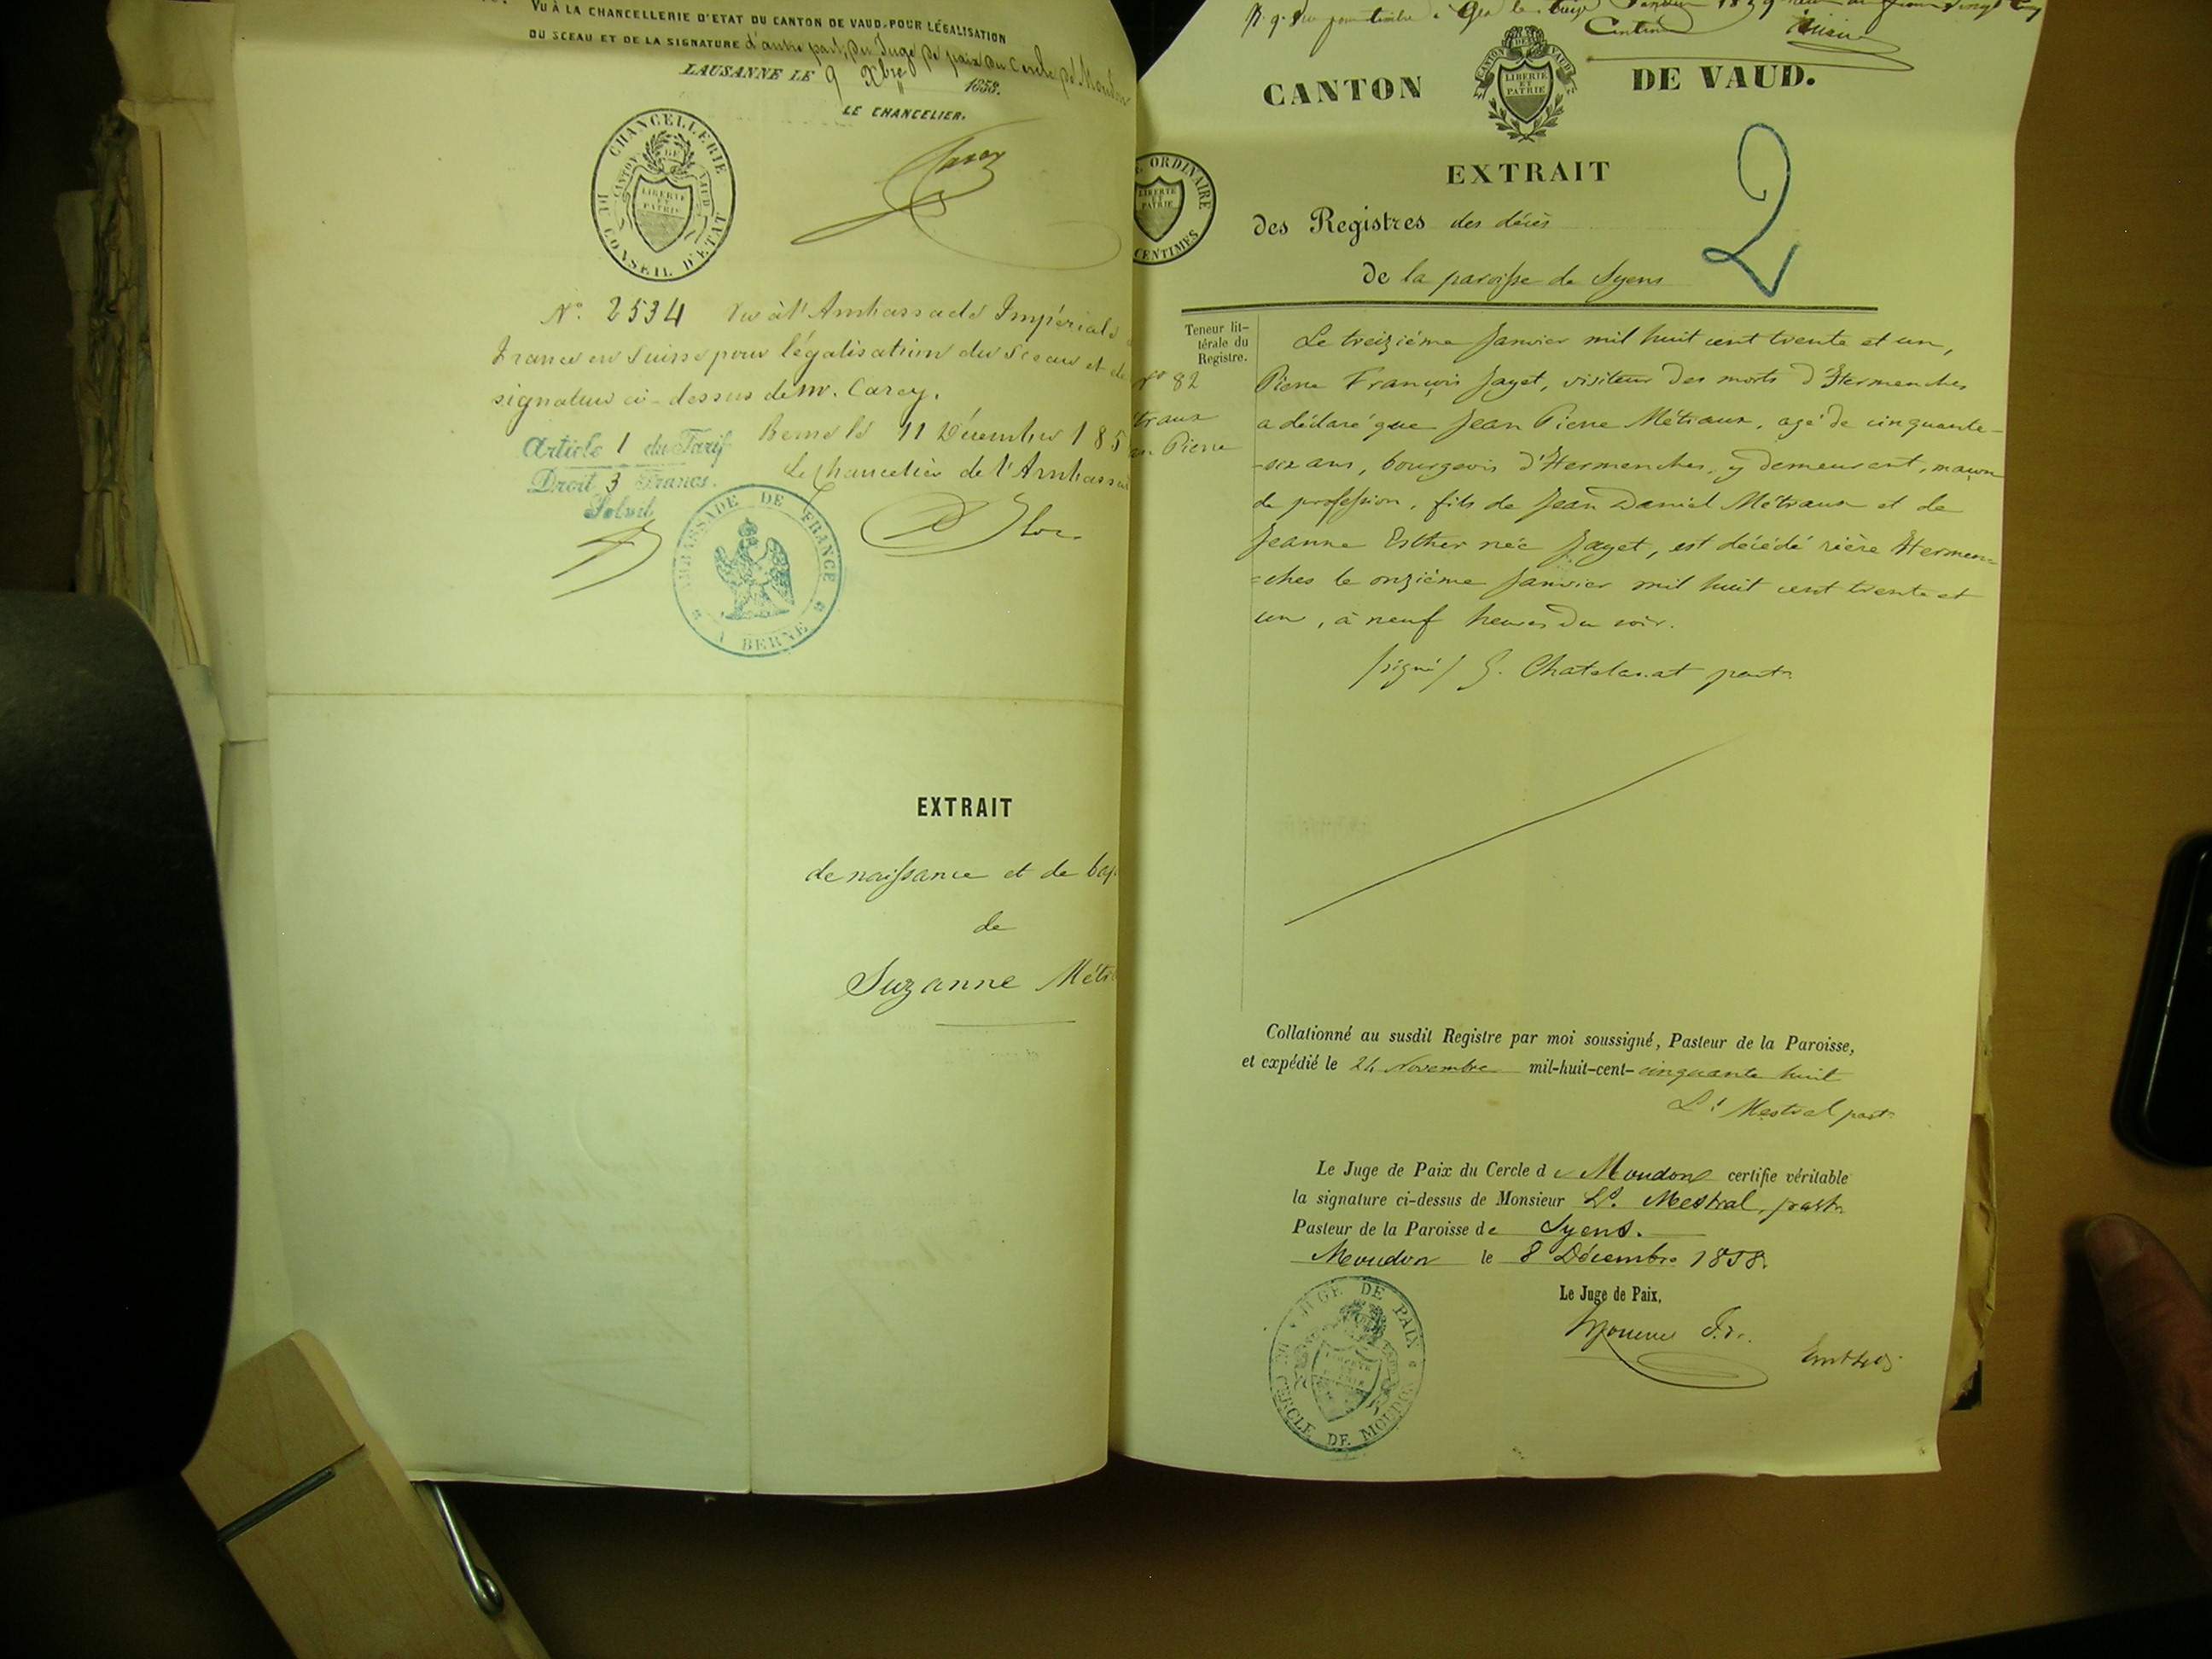 VU À LA CHANCELLERIE D'ETAT DU CANTON DE VAUD, POUR LÉGALISATION
DU SCEAU ET DE LA SIGNATURE d'autre part, du Juge de paix du Cercle de Moudon
LAUSANNE LE 9 Xbre 1858.
LE CHANCELIER.
Carey
CHANCELLERIE DU CONSEIL D'ETAT
CANTON DE VAUD
LIBERTÉ ET PATRIE
No. 2534 Vu à l'Ambassade Impériale
France en Suisse pour légalisation du Sceau et de
signature ci-dessus de Mr. Carey.
Berne le 11 Décembre 185
Le Chancelier de l'Ambassa
Article 1 du Tarif
Droit 3 Francs.
Solvit
AMBASSADE DE FRANCE
A BERNE
EXTRAIT
de naissance et de bap
de
Suzanne Métr
Centimes
CANTON DE VAUD.
CANTON DE VAUD
LIBERTÉ ET PATRIE
ORDINAIRE
LIBERTÉ ET PATRIE
CENTIMES
EXTRAIT
2
des Registres des décès
de la paroisse de Syens
Teneur lit-
térale du
Registre.
No 82
étraux
an Pierre
Le treizième Janvier mil huit cent trente et un,
Pierre François Jayet, visiteur des morts d'Hermenches
a déclaré que Jean Pierre Métraux, agé de cinquante-
-six ans, bourgeois d'Hermenches, y demeurant, maçon
de profession, fils de Jean Daniel Métraux et de
Jeanne Esther née Jayet, est décédé rière Hermen=
=ches le onzième Janvier mil huit cent trente et
un, à neuf heures du soir.
/signé/ G. Chatelanat pastr
Collationné au susdit Registre par moi soussigné, Pasteur de la Paroisse,
et expédié le 24 Novembre mil-huit-cent-cinquante huit
Ls Mestral pastr
Le Juge de Paix du Cercle de Moudon certifie véritable
la signature ci-dessus de Monsieur Ls. Mestral, pastr
Pasteur de la Paroisse de Syens.
Moudon le 8 Décembre 1858.
Le Juge de Paix,
JUGE DE PAIX
DU CERCLE DE MOUDON